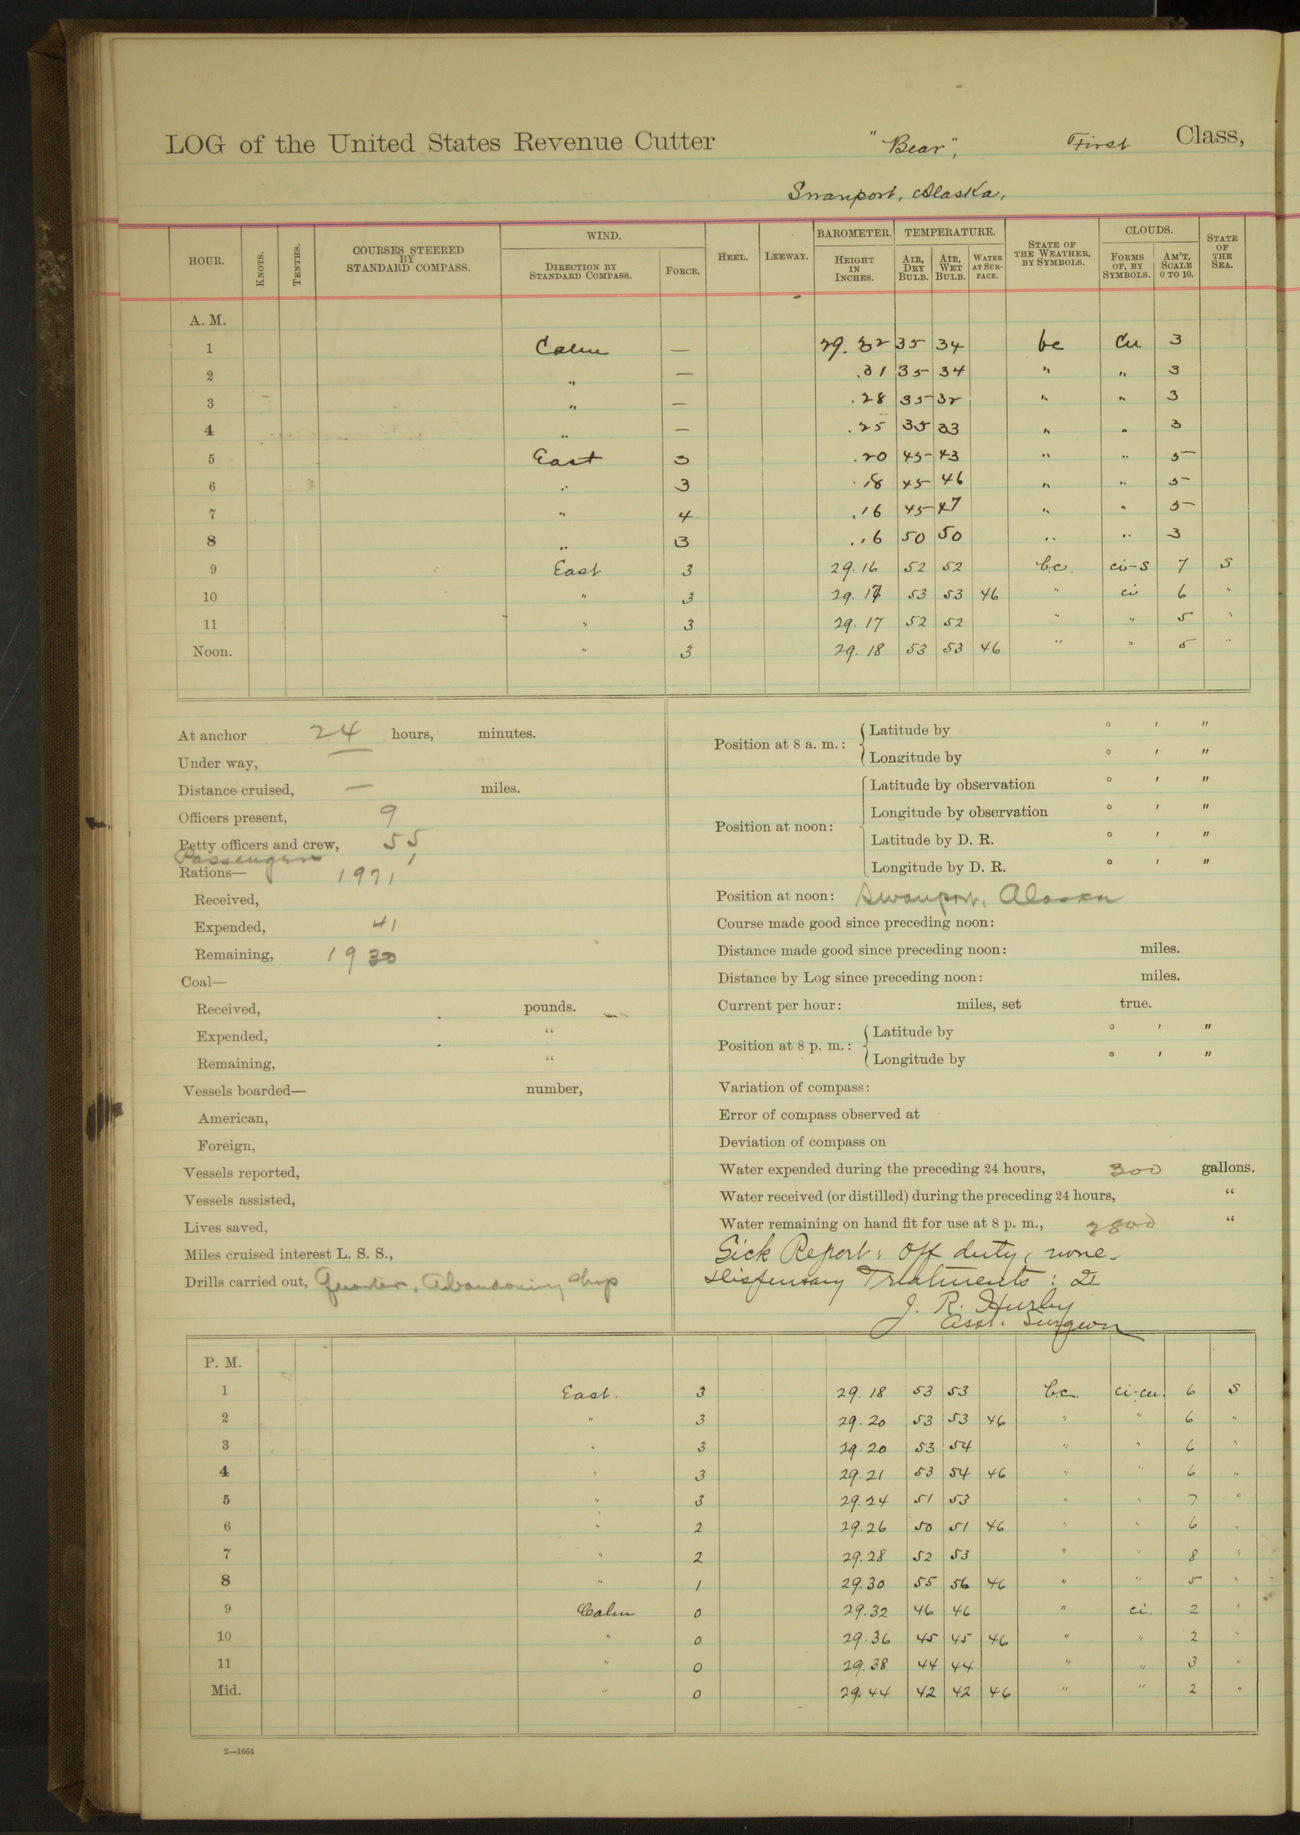 LOG of the United States Revenue Cutter "Bear", First Class,
Swanport, Alaska,
HOUR. KNOTS. TENTHS. COURSES STEERED BY STANDARD COMPASS. WIND. DIRECTION BY STANDARD COMPASS. FORCE. HEEL. LEEWAY. BAROMETER. HEIGHT IN INCHES. TEMPERATURE. AIR, DRY BULB. AIR, WET BULB. WATER AT SURFACE. STATE OF THE WEATHER, BY SYMBOLS. CLOUDS. FORMS OF, BY SYMBOLS. AM'T, SCALE 0 TO 10. STATE OF THE SEA.
A. M.
1 Calm — 29.32 35 34 bc Cu 3
2 " — .31 35 34 " " 3
3 " — .28 35 32 " " 3
4 " — .25 35 33 " " 3
5 East 3 .20 45 43 " " 5
6 " 3 .18 45 46 " " 5
7 " 4 .16 45 47 " " 5
8 " 3 .16 50 50 " " 3
9 East 3 29.16 52 52 bc. ci-s 7 S
10 " 3 29.17 53 53 46 " ci 6 "
11 " 3 29.17 52 52 " " 5 "
Noon. " 3 29.18 53 53 46 " " 5 "
At anchor 24 hours, minutes.
Under way, —
Distance cruised, — miles.
Officers present, 9
Petty officers and crew, 55
Passengers 1
Rations— 1971
Received,
Expended, 41
Remaining, 1930
Coal—
Received, pounds.
Expended, "
Remaining, "
Vessels boarded— number,
American,
Foreign,
Vessels reported,
Vessels assisted,
Lives saved,
Miles cruised interest L. S. S.,
Drills carried out, Quarters, Abandoning ship
Position at 8 a. m.: Latitude by ° ' "
Longitude by ° ' "
Position at noon: Latitude by observation ° ' "
Longitude by observation ° ' "
Latitude by D. R. ° ' "
Longitude by D. R. ° ' "
Position at noon: Swanport, Alaska
Course made good since preceding noon:
Distance made good since preceding noon: miles.
Distance by Log since preceding noon: miles.
Current per hour: miles, set true.
Position at 8 p. m.: Latitude by ° ' "
Longitude by ° ' "
Variation of compass:
Error of compass observed at
Deviation of compass on
Water expended during the preceding 24 hours, 300 gallons.
Water received (or distilled) during the preceding 24 hours, "
Water remaining on hand fit for use at 8 p. m., 2800 "
Sick Report: off duty, none.
Dispensary Treatments: 2
J. R. Hurley
Asst. Surgeon
P. M.
1 East. 3 29.18 53 53 bc. ci-cu. 6 S
2 " 3 29.20 53 53 46 " " 6 "
3 " 3 29.20 53 54 " " 6 "
4 " 3 29.21 53 54 46 " " 6 "
5 " 3 29.24 51 53 " " 7 "
6 " 2 29.26 50 51 46 " " 6 "
7 " 2 29.28 52 53 " " 8 "
8 " 1 29.30 55 56 46 " " 5 "
9 Calm 0 29.32 46 46 " ci. 2 "
10 " 0 29.36 45 45 46 " " 2 "
11 " 0 29.38 44 44 " " 3 "
Mid. " 0 29.44 42 42 46 " " 2 "
2—1664